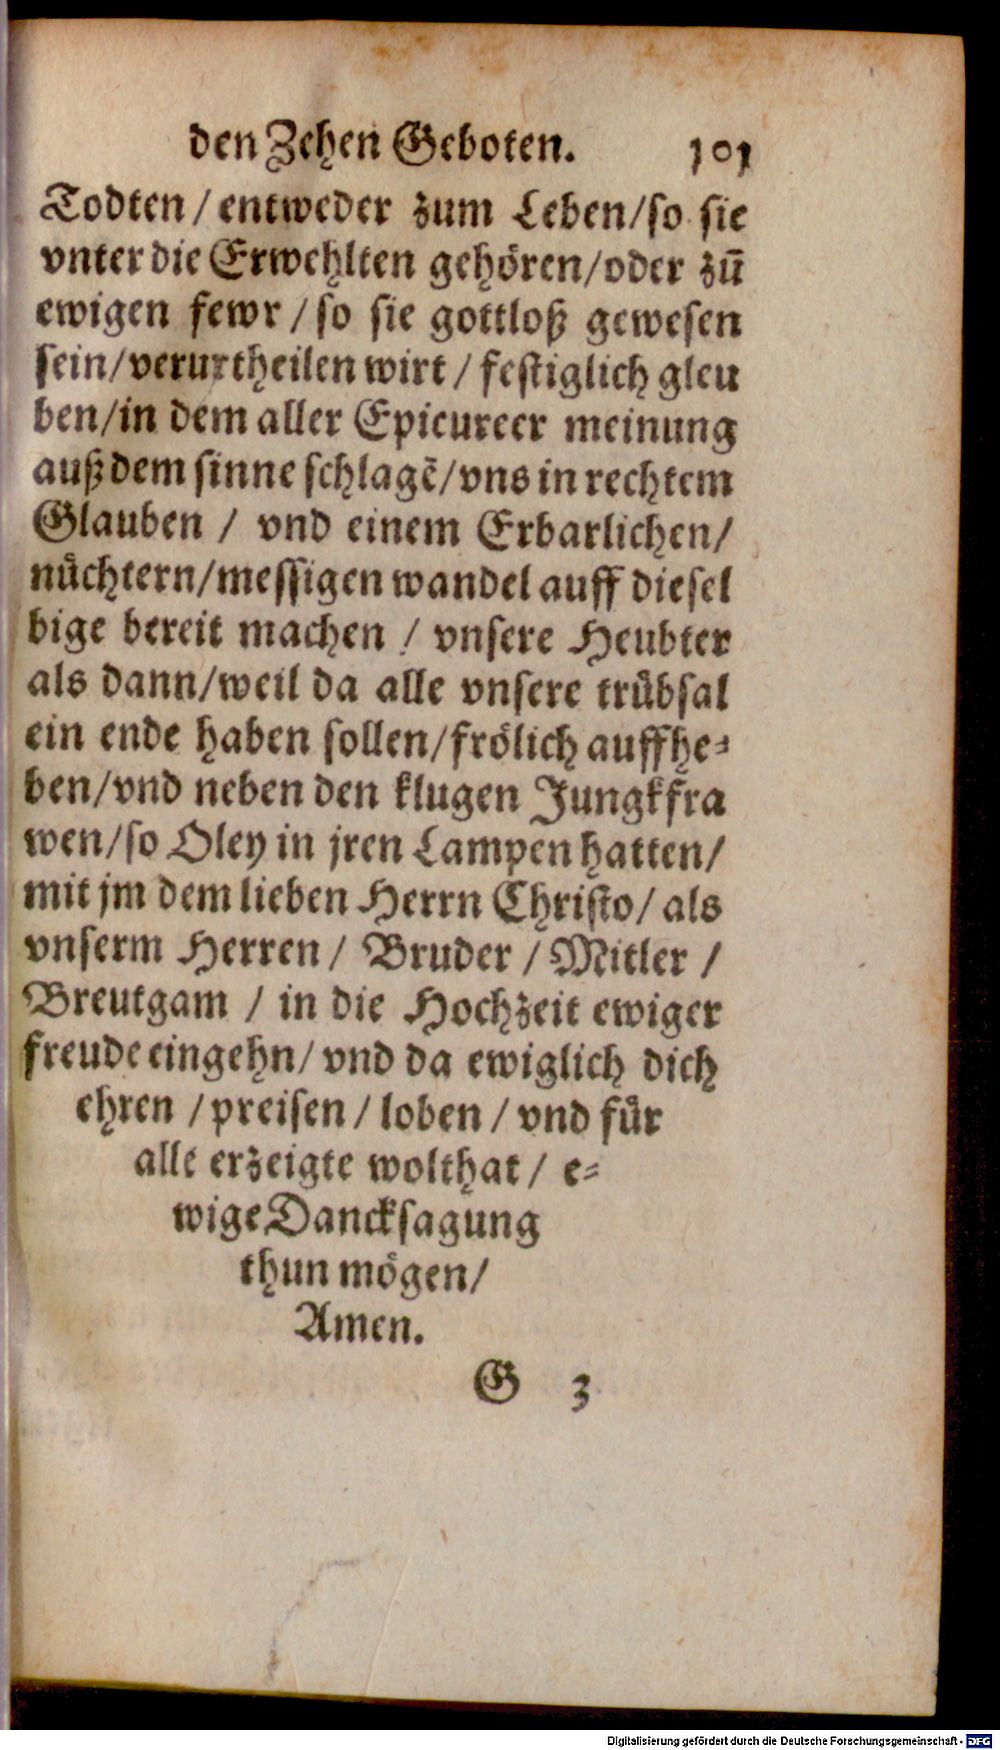 den Zehen Geboten. 101
Todten / entweder zum Leben/so sie
vnter die Erwehlten gehören/oder zū
ewigen fewr / so sie gottloß gewesen
sein/verurtheilen wirt / festiglich gleu
ben/in dem aller Epicureer meinung
auß dem sinne schlagē/vns in rechtem
Glauben / vnd einem Erbarlichen/
nüchtern/messigen wandel auff diesel
bige bereit machen / vnsere Heubter
als dann/weil da alle vnsere trübsal
ein ende haben sollen/frölich auffhe-
ben/vnd neben den klugen Jungkfra
wen/so Oley in jren Lampen hatten/
mit jm dem lieben Herrn Christo/ als
vnserm Herren / Bruder / Mitler /
Breutgam / in die Hochzeit ewiger
freude eingehn/ vnd da ewiglich dich
ehren / preisen / loben / vnd für
alle erzeigte wolthat / e-
wige Dancksagung
thun mögen/
Amen.
G 3
Digitalisierung gefördert durch die Deutsche Forschungsgemeinschaft - DFG